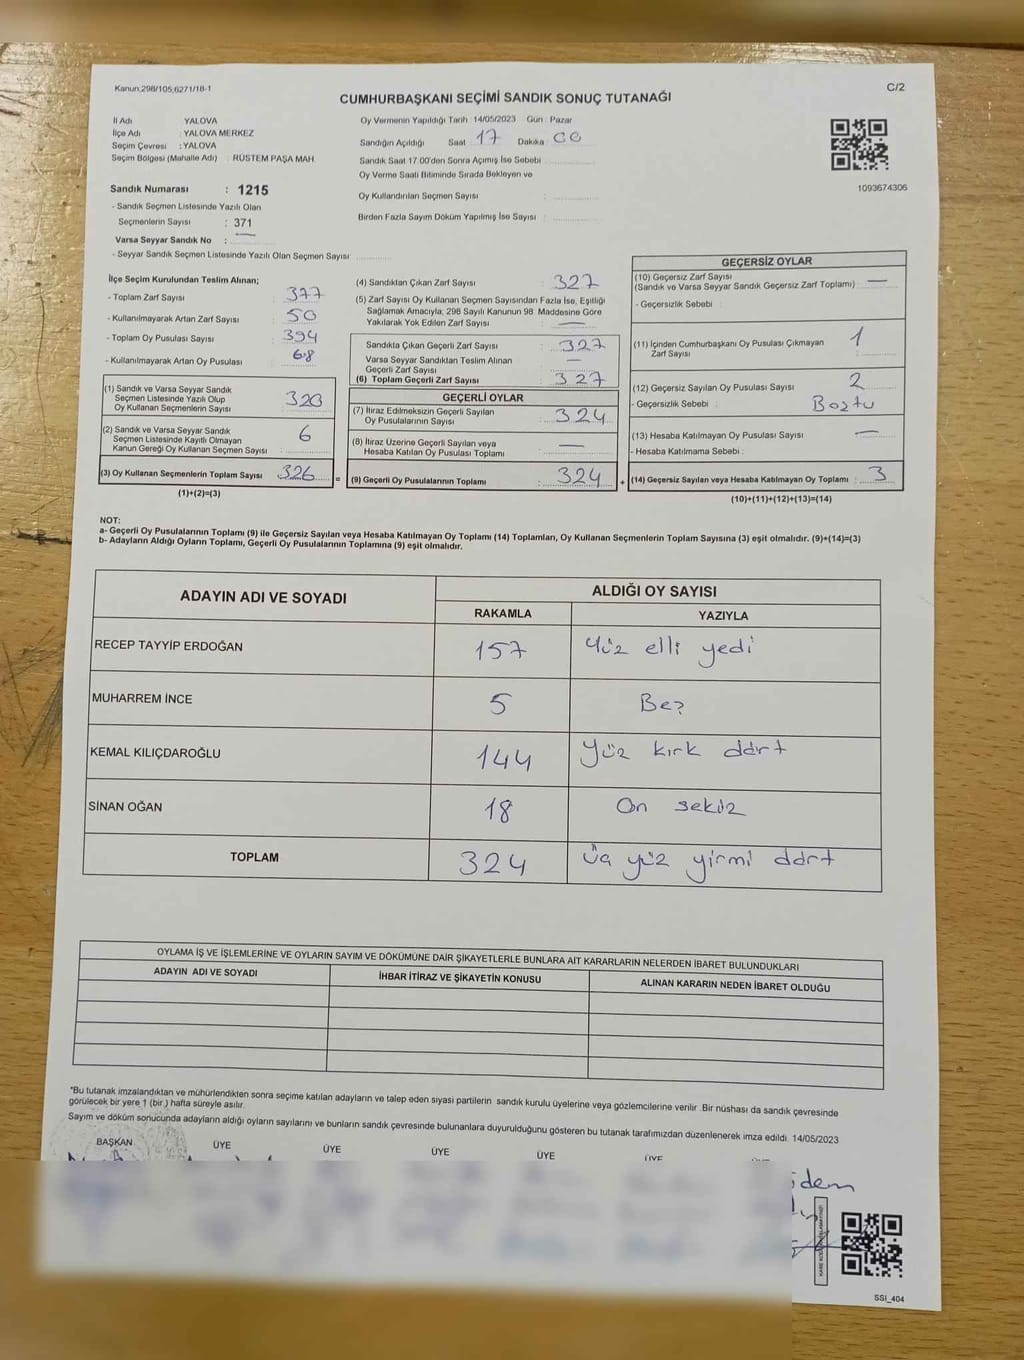 Kanun;298/105,6271/18-1
C/2
CUMHURBAŞKANI SEÇİMİ SANDIK SONUÇ TUTANAĞI
İl Adı YALOVA
İlçe Adı : YALOVA MERKEZ
Seçim Çevresi : YALOVA
Seçim Bölgesi (Mahalle Adı) : RÜSTEM PAŞA MAH.
Oy Vermenin Yapıldığı Tarih 14/05/2023 Gün : Pazar
Sandığın Açıldığı Saat 17 Dakika : 00
Sandık Saat 17.00'den Sonra Açımış İse Sebebi
Oy Verme Saati Bitiminde Sırada Bekleyen ve
Oy Kullandırılan Seçmen Sayısı :
Birden Fazla Sayım Döküm Yapılmış İse Sayısı :
1093674306
Sandık Numarası : 1215
- Sandık Seçmen Listesinde Yazılı Olan
Seçmenlerin Sayısı : 371
Varsa Seyyar Sandık No : —
- Seyyar Sandık Seçmen Listesinde Yazılı Olan Seçmen Sayısı
İlçe Seçim Kurulundan Teslim Alınan;
- Toplam Zarf Sayısı : 377
- Kullanılmayarak Artan Zarf Sayısı : 50
- Toplam Oy Pusulası Sayısı : 394
- Kullanılmayarak Artan Oy Pusulası : 68
(1) Sandık ve Varsa Seyyar Sandık
Seçmen Listesinde Yazılı Olup
Oy Kullanan Seçmenlerin Sayısı : 320
(2) Sandık ve Varsa Seyyar Sandık
Seçmen Listesinde Kayıtlı Olmayan
Kanun Gereği Oy Kullanan Seçmen Sayısı : 6
(3) Oy Kullanan Seçmenlerin Toplam Sayısı : 326
(1)+(2)=(3)
(4) Sandıktan Çıkan Zarf Sayısı : 327
(5) Zarf Sayısı Oy Kullanan Seçmen Sayısından Fazla İse, Eşitliği
Sağlamak Amacıyla; 298 Sayılı Kanunun 98. Maddesine Göre
Yakılarak Yok Edilen Zarf Sayısı : —
Sandıkta Çıkan Geçerli Zarf Sayısı : 327
Varsa Seyyar Sandıktan Teslim Alınan
Geçerli Zarf Sayısı : —
(6) Toplam Geçerli Zarf Sayısı : 327
GEÇERLİ OYLAR
(7) İtiraz Edilmeksizin Geçerli Sayılan
Oy Pusulalarının Sayısı : 324
(8) İtiraz Üzerine Geçerli Sayılan veya
Hesaba Katılan Oy Pusulası Toplamı : —
= (9) Geçerli Oy Pusulalarının Toplamı : 324
GEÇERSİZ OYLAR
(10) Geçersiz Zarf Sayısı
(Sandık ve Varsa Seyyar Sandık Geçersiz Zarf Toplamı) : —
- Geçersizlik Sebebi :
(11) İçinden Cumhurbaşkanı Oy Pusulası Çıkmayan
Zarf Sayısı : 1
(12) Geçersiz Sayılan Oy Pusulası Sayısı : 2
- Geçersizlik Sebebi : Boztu
(13) Hesaba Katılmayan Oy Pusulası Sayısı : —
- Hesaba Katılmama Sebebi :
+ (14) Geçersiz Sayılan veya Hesaba Katılmayan Oy Toplamı : 3
(10)+(11)+(12)+(13)=(14)
NOT:
a- Geçerli Oy Pusulalarının Toplamı (9) ile Geçersiz Sayılan veya Hesaba Katılmayan Oy Toplamı (14) Toplamları, Oy Kullanan Seçmenlerin Toplam Sayısına (3) eşit olmalıdır. (9)+(14)=(3)
b- Adayların Aldığı Oyların Toplamı, Geçerli Oy Pusulalarının Toplamına (9) eşit olmalıdır.
ADAYIN ADI VE SOYADI ALDIĞI OY SAYISI
RAKAMLA YAZIYLA
RECEP TAYYİP ERDOĞAN 157 Yüz elli yedi
MUHARREM İNCE 5 Beş
KEMAL KILIÇDAROĞLU 144 Yüz kırk dört
SİNAN OĞAN 18 On sekiz
TOPLAM 324 Üç yüz yirmi dört
OYLAMA İŞ VE İŞLEMLERİNE VE OYLARIN SAYIM VE DÖKÜMÜNE DAİR ŞİKAYETLERLE BUNLARA AİT KARARLARIN NELERDEN İBARET BULUNDUKLARI
ADAYIN ADI VE SOYADI İHBAR İTİRAZ VE ŞİKAYETİN KONUSU ALINAN KARARIN NEDEN İBARET OLDUĞU
*Bu tutanak imzalandıktan ve mühürlendikten sonra seçime katılan adayların ve talep eden siyasi partilerin sandık kurulu üyelerine veya gözlemcilerine verilir .Bir nüshası da sandık çevresinde
görülecek bir yere 1 (bir ) hafta süreyle asılır.
Sayım ve döküm sonucunda adayların aldığı oyların sayılarını ve bunların sandık çevresinde bulunanlara duyurulduğunu gösteren bu tutanak tarafımızdan düzenlenerek imza edildi. 14/05/2023
BAŞKAN ÜYE ÜYE ÜYE ÜYE ÜYE
SSI_404